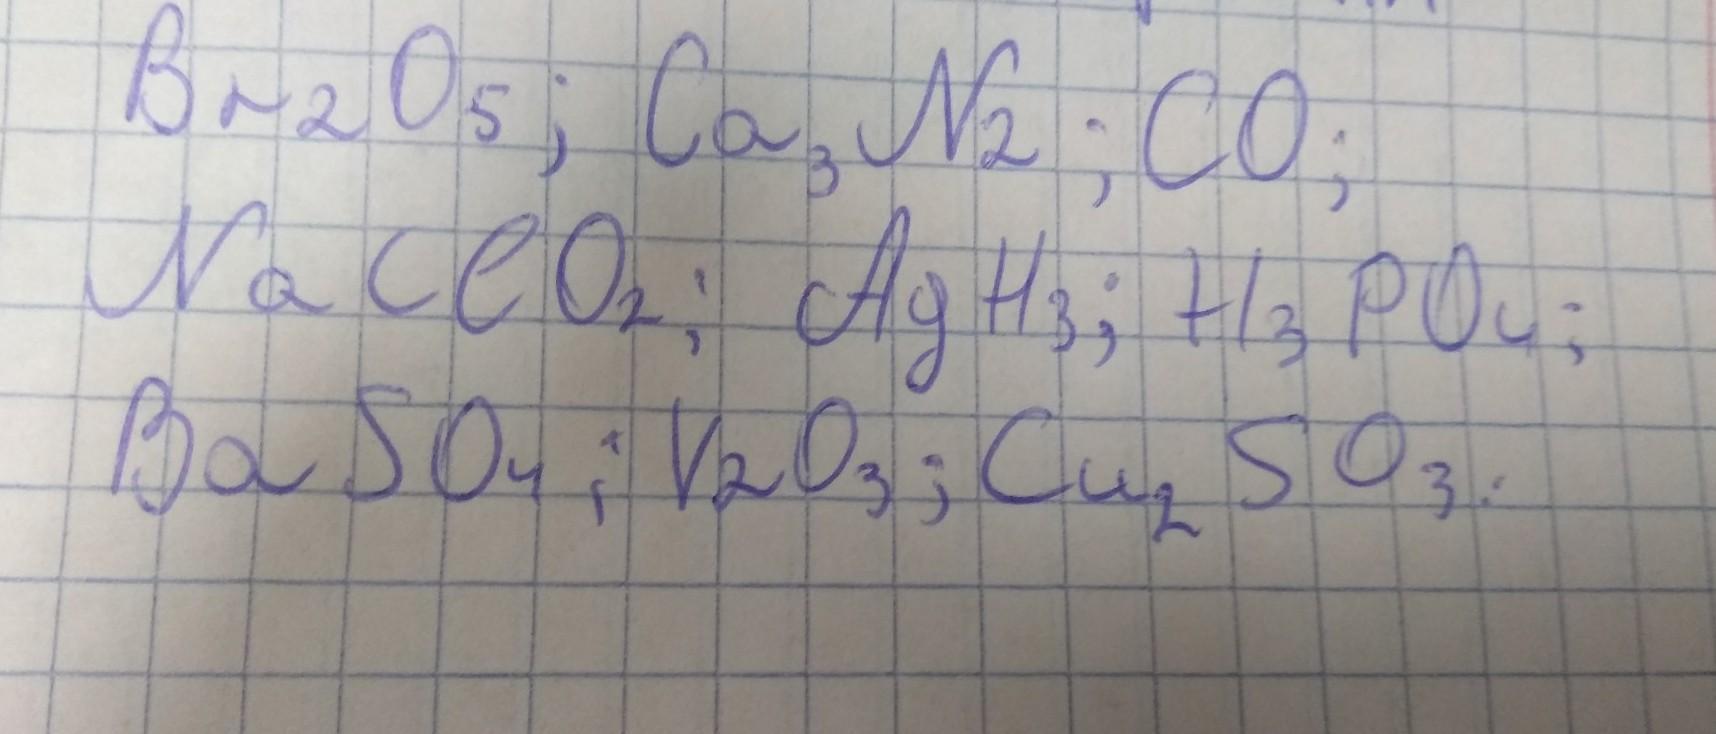 Br₂O₅; Ca₃N₂; CO;
NaClO₂; AgH₃; H₃PO₄;
BaSO₄; V₂O₃; Cu₂SO₃.